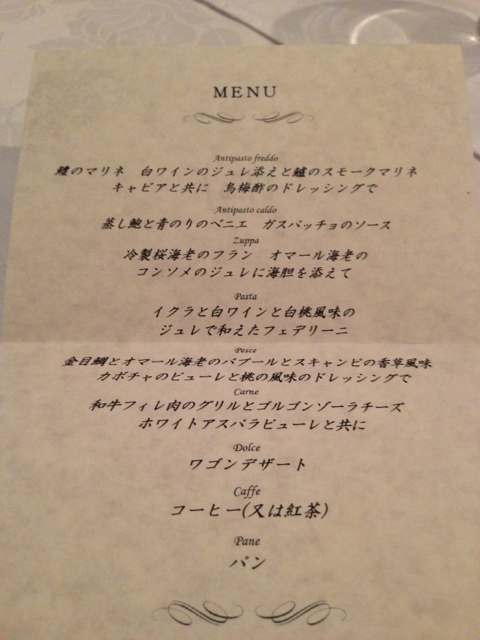 MENU
Antipasto freddo
鱧のマリネ　白ワインのジュレ添えと鱸のスモークマリネ
キャビアと共に　烏梅酢のドレッシングで
Antipasto caldo
蒸し鮑と青のりのベニエ　ガスパッチョのソース
Zuppa
冷製桜海老のフラン　オマール海老の
コンソメのジュレに海胆を添えて
Pasta
イクラと白ワインと白桃風味の
ジュレで和えたフェデリーニ
Pesce
金目鯛とオマール海老のバプールとスキャンピの香草風味
カボチャのピューレと桃の風味のドレッシングで
Carne
和牛フィレ肉のグリルとゴルゴンゾーラチーズ
ホワイトアスパラピューレと共に
Dolce
ワゴンデザート
Caffe
コーヒー(又は紅茶)
Pane
パン